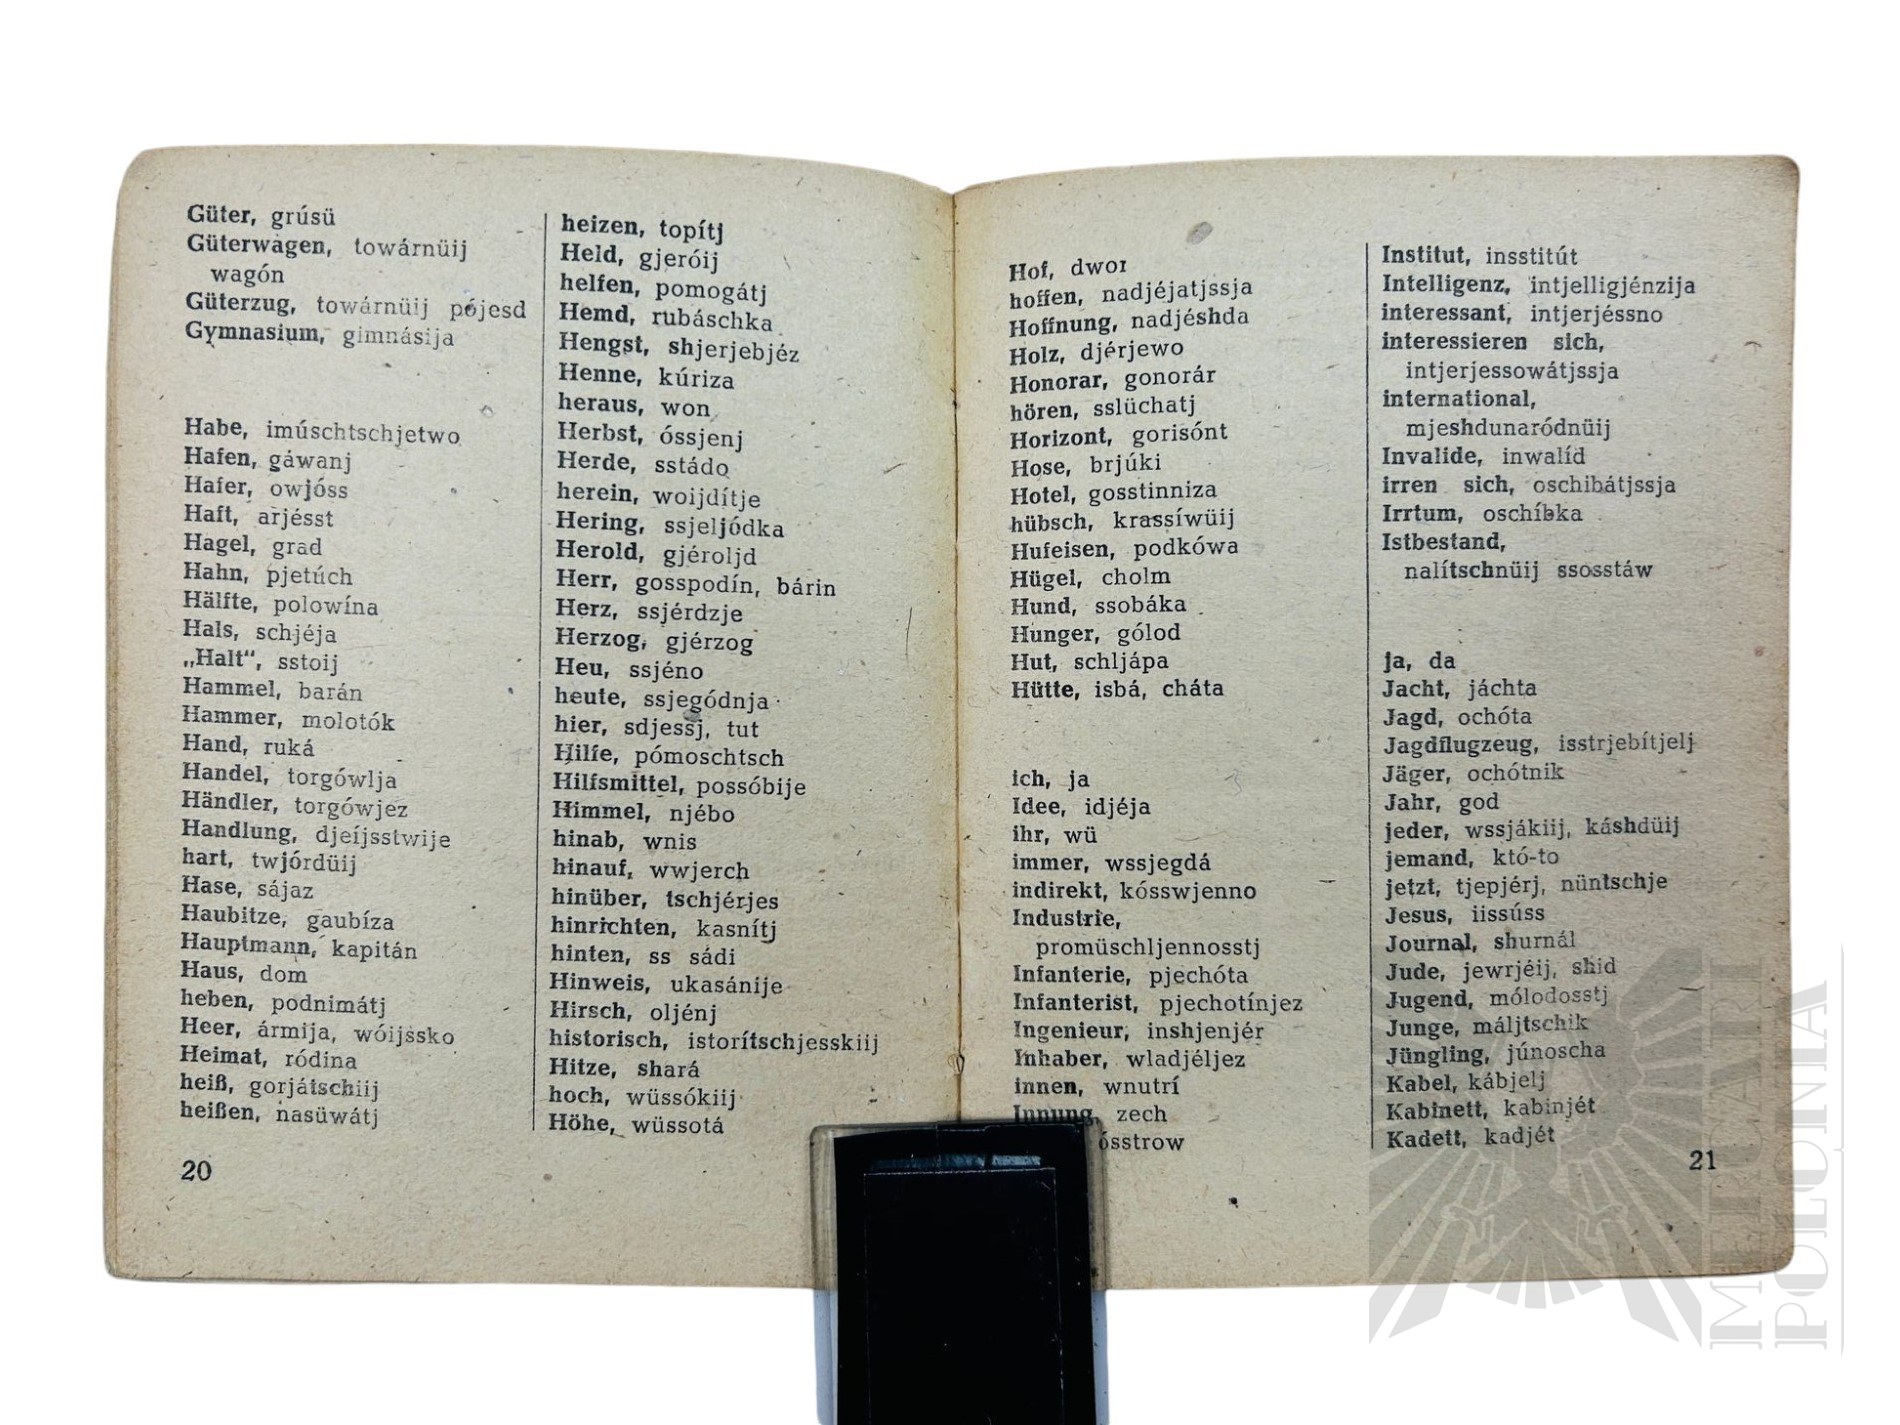 Güter, grúsü
Güterwagen, towárnüij
wagón
Güterzug, towárnüij pójesd
Gymnasium, gimnásija
Habe, imúschtschjetwo
Hafen, gáwanj
Hafer, owjóss
Haft, arjésst
Hagel, grad
Hahn, pjetúch
Hälfte, polowína
Hals, schjéja
„Halt“, sstoij
Hammel, barán
Hammer, molotók
Hand, ruká
Handel, torgówlja
Händler, torgówjez
Handlung, djeíjsstwije
hart, twjórdüij
Hase, sájaz
Haubitze, gaubíza
Hauptmann, kapitán
Haus, dom
heben, podnimátj
Heer, ármija, wóijssko
Heimat, ródina
heiß, gorjátschiij
heißen, nasüwátj
20
heizen, topítj
Held, gjeróij
helfen, pomogátj
Hemd, rubáschka
Hengst, shjerjebjéz
Henne, kúriza
heraus, won
Herbst, óssjenj
Herde, sstádo
herein, woijdítje
Hering, ssjeljódka
Herold, gjéroljd
Herr, gosspodín, bárin
Herz, ssjérdzje
Herzog, gjérzog
Heu, ssjéno
heute, ssjegódnja
hier, sdjessj, tut
Hilfe, pómoschtsch
Hilfsmittel, possóbije
Himmel, njébo
hinab, wnis
hinauf, wwjerch
hinüber, tschjérjes
hinrichten, kasnítj
hinten, ss sádi
Hinweis, ukasánije
Hirsch, oljénj
historisch, istorítschjesskiij
Hitze, shará
hoch, wüssókiij
Höhe, wüssotá
Hof, dwor
hoffen, nadjéjatjssja
Hoffnung, nadjéshda
Holz, djérjewo
Honorar, gonorár
hören, sslüchatj
Horizont, gorisónt
Hose, brjúki
Hotel, gosstinniza
hübsch, krassíwüij
Hufeisen, podkówa
Hügel, cholm
Hund, ssobáka
Hunger, gólod
Hut, schljápa
Hütte, isbá, cháta
ich, ja
Idee, idjéja
ihr, wü
immer, wssjegdá
indirekt, kósswjenno
Industrie,
promüschljennosstj
Infanterie, pjechóta
Infanterist, pjechotínjez
Ingenieur, inshjenjér
Inhaber, wladjéljez
innen, wnutrí
Innung, zech
ósstrow
Institut, insstitút
Intelligenz, intjelligjénzija
interessant, intjerjéssno
interessieren sich,
intjerjessowátjssja
international,
mjeshdunaródnüij
Invalide, inwalíd
irren sich, oschibátjssja
Irrtum, oschíbka
Istbestand,
nalítschnüij ssosstáw
ja, da
Jacht, jáchta
Jagd, ochóta
Jagdflugzeug, isstrjebítjelj
Jäger, ochótnik
Jahr, god
jeder, wssjákiij, káshdüij
jemand, któ-to
jetzt, tjepjérj, nüntschje
Jesus, iissúss
Journal, shurnál
Jude, jewrjéij, shid
Jugend, mólodosstj
Junge, máljtschik
Jüngling, júnoscha
Kabel, kábjelj
Kabinett, kabinjét
Kadett, kadjét
21
METICARI
POLONIA